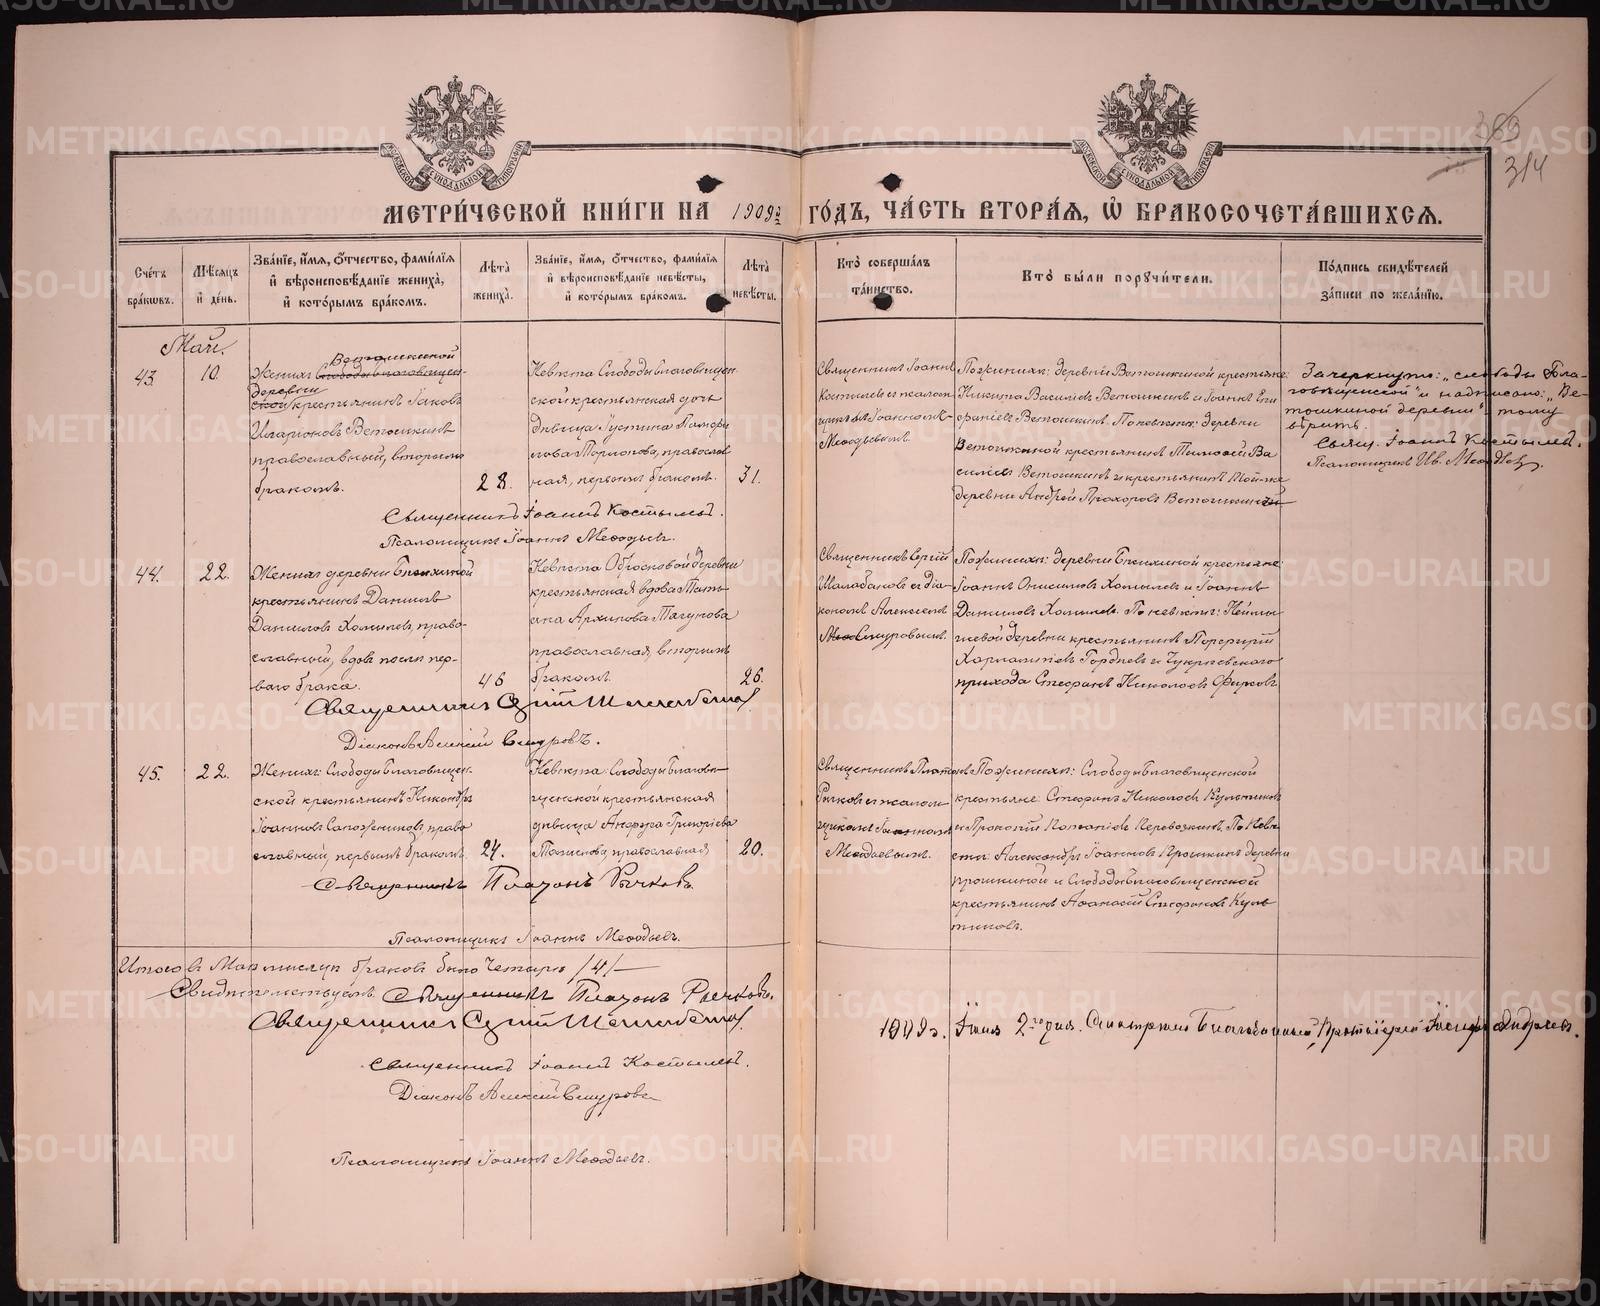 363
314
МЕТРИ́ЧЕСКОЙ КНИ́ГИ НА 1909й ГО́ДЪ, ЧА́СТЬ ВТОРА́Я, Ѡ БРАКОСОЧЕТА́ВШИХСЯ.
Сче́тъ бра́кѡвъ.
Мѣ́сѧцъ и҆ де́нь.
Зва́нїе, и҆́мя, ѻ҆́тчество, фами́лїя и҆ вѣроисповѣ́данїе жениха̀, и҆ кото́рымъ бра́комъ.
Лѣ́та жениха̀.
Зва́нїе, и҆́мя, ѻ҆́тчество, фами́лїя и҆ вѣроисповѣ́данїе невѣ́сты, и҆ кото́рымъ бра́комъ.
Лѣ́та невѣ́сты.
Кто̀ соверша́лъ та́инство.
Кто̀ бы́ли порꙋчи́тели.
По́дпись свидѣ́телей за́писи по жела́нїю.
Май.
43.
10.
Ветошкиной
Женихъ Слободы Благовѣщен-
деревни
ской крестьянинъ Іаковъ
Иларіоновъ Ветошкинъ
православный, вторымъ
бракомъ.
28.
Невѣста Слободы Благовѣщен
ской крестьянская дочь
дѣвица Іустина Памфи
лова, правосла
ная, первымъ бракомъ.
31.
Священникъ Іоаннъ
Костылевъ съ псалом
щикомъ Іоанномъ
Меѳодьевымъ
По женихѣ: деревни Ветошкиной крестьяне
Никита Василіевъ Ветошкинъ и Іоаннъ
Ветошкинъ. По невѣстѣ: деревни
Ветошкиной крестьянинъ Тимоѳей Ва
силіевъ Ветошкинъ и крестьянинъ той-же
деревни Андрей Прохоровъ Ветошкинъ
Зачеркнуто: „слободы Бла-
говѣщенской" и надписано: „Ве-
тошкиной деревни" - тому
вѣрить.
Свящ. Іоаннъ Костылевъ.
Псаломщикъ Ив. Меѳодьевъ.
Священникъ Іоаннъ Костылевъ.
Псаломщикъ Іоаннъ Меѳодьевъ.
44.
22.
Женихъ деревни
крестьянинъ Даніилъ
Даніиловъ Хомылевъ, право-
славный, вдовъ послѣ пер-
ваго брака.
46
Невѣста Обросковой деревни
крестьянская вдова Тать
ана Архипова Тагунова
православная, вторымъ
бракомъ.
26.
Священникъ Сергій
Шалабановъ съ діа-
кономъ Алексіемъ
Смуровымъ.
По женихѣ: деревни крестьяне
Іоаннъ Онисимовъ Хомылевъ и Іоаннъ
Даніиловъ Хомылевъ. По невѣстѣ:
деревни крестьянинъ Порфирій
Харлампіевъ Гордѣевъ и
прихода Стефанъ Николаевъ Фирсовъ
Священникъ Сергій Шалабановъ
Діаконъ Алексій Смуровъ.
45.
22.
Женихъ: Слободы Благовѣщен-
ской крестьянинъ Никандръ
Іоанновъ Сапожниковъ, право
славный, первымъ бракомъ.
24.
Невѣста: Слободы Благовѣ
щенской крестьянская
дѣвица Анфуза Григоріева
православная
20.
Священникъ Платонъ
Рычковъ съ псалом
щикомъ Іоанномъ
Меѳодьевымъ.
По женихѣ: Слободы Благовѣщенской
крестьяне: Стефанъ Николаевъ Культиковъ
и Прокопій Перевозкинъ. По невѣ
стѣ: Александръ Іоанновъ Ярошкинъ деревни
и Слободы Благовѣщенской
крестьянинъ Аѳанасій Стефановъ Куль
тиковъ.
Священникъ Платонъ Рычковъ.
Псаломщикъ Іоаннъ Меѳодьевъ.
Итого въ Маѣ мѣсяцѣ браковъ было четыре /4/
Свидѣтельствуемъ: Священникъ Платонъ Рычковъ.
Священникъ Сергій Шалабановъ
Священникъ Іоаннъ Костылевъ.
Діаконъ Алексій Смуровъ
Псаломщикъ Іоаннъ Меѳодьевъ.
1909 г. Іюня 2го дня. Смотрѣлъ Благочинный, Протоіерей Іосифъ Андреевъ.
METRIKI.GASO-URAL.RU